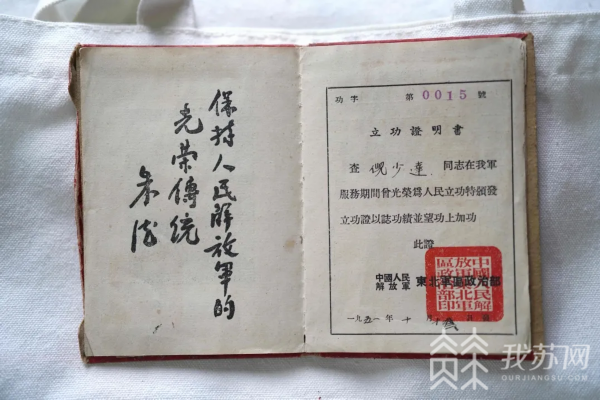 保持人民解放軍的
光荣傳統
朱德
功字 第0015號
立功證明書
查 倪少達 同志在我軍
服務期間曾光榮爲人民立功特頒發
立功證以誌功績並望功上加功
此證
中國人民
解放軍 東北軍區政治部
中國人民解
放軍東北軍
區政治部印
一九五一年十月
我苏网
OURJIANGSU.COM